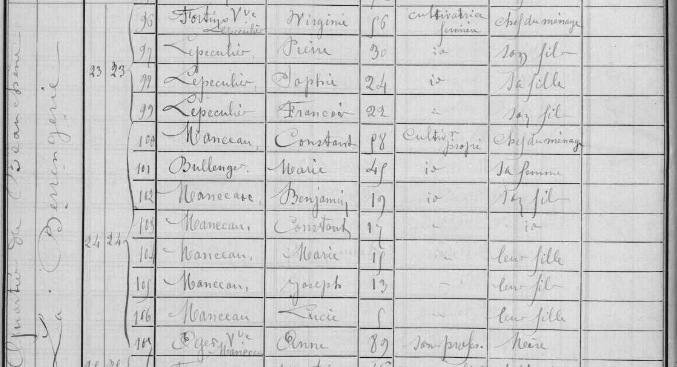 Quartier de Beauchene
La Berengerie
96 Fortin Vve Lepeculier Virginie 56 cultivatrice fermière chef du ménage
97 Lepeculier Pierre 30 id son fils
23 23 98 Lepeculier, Sophie 24 id sa fille
99 Lepeculier François 22 " son fils
100 Manceau, Constant 58 Cultivr propre Chef du ménage
101 Bullenger Marie 45 id sa femme
102 Manceau, Benjamin 19 id son fils
103 Manceau, Constant 17 " id
24 24 104 Manceau, Marie 15 " leur fille
105 Manceau, Joseph 13 " leur fils
106 Manceau Lucie 5 " leur fille
107 Vve Manceau Anne 82 sans profes. Mère